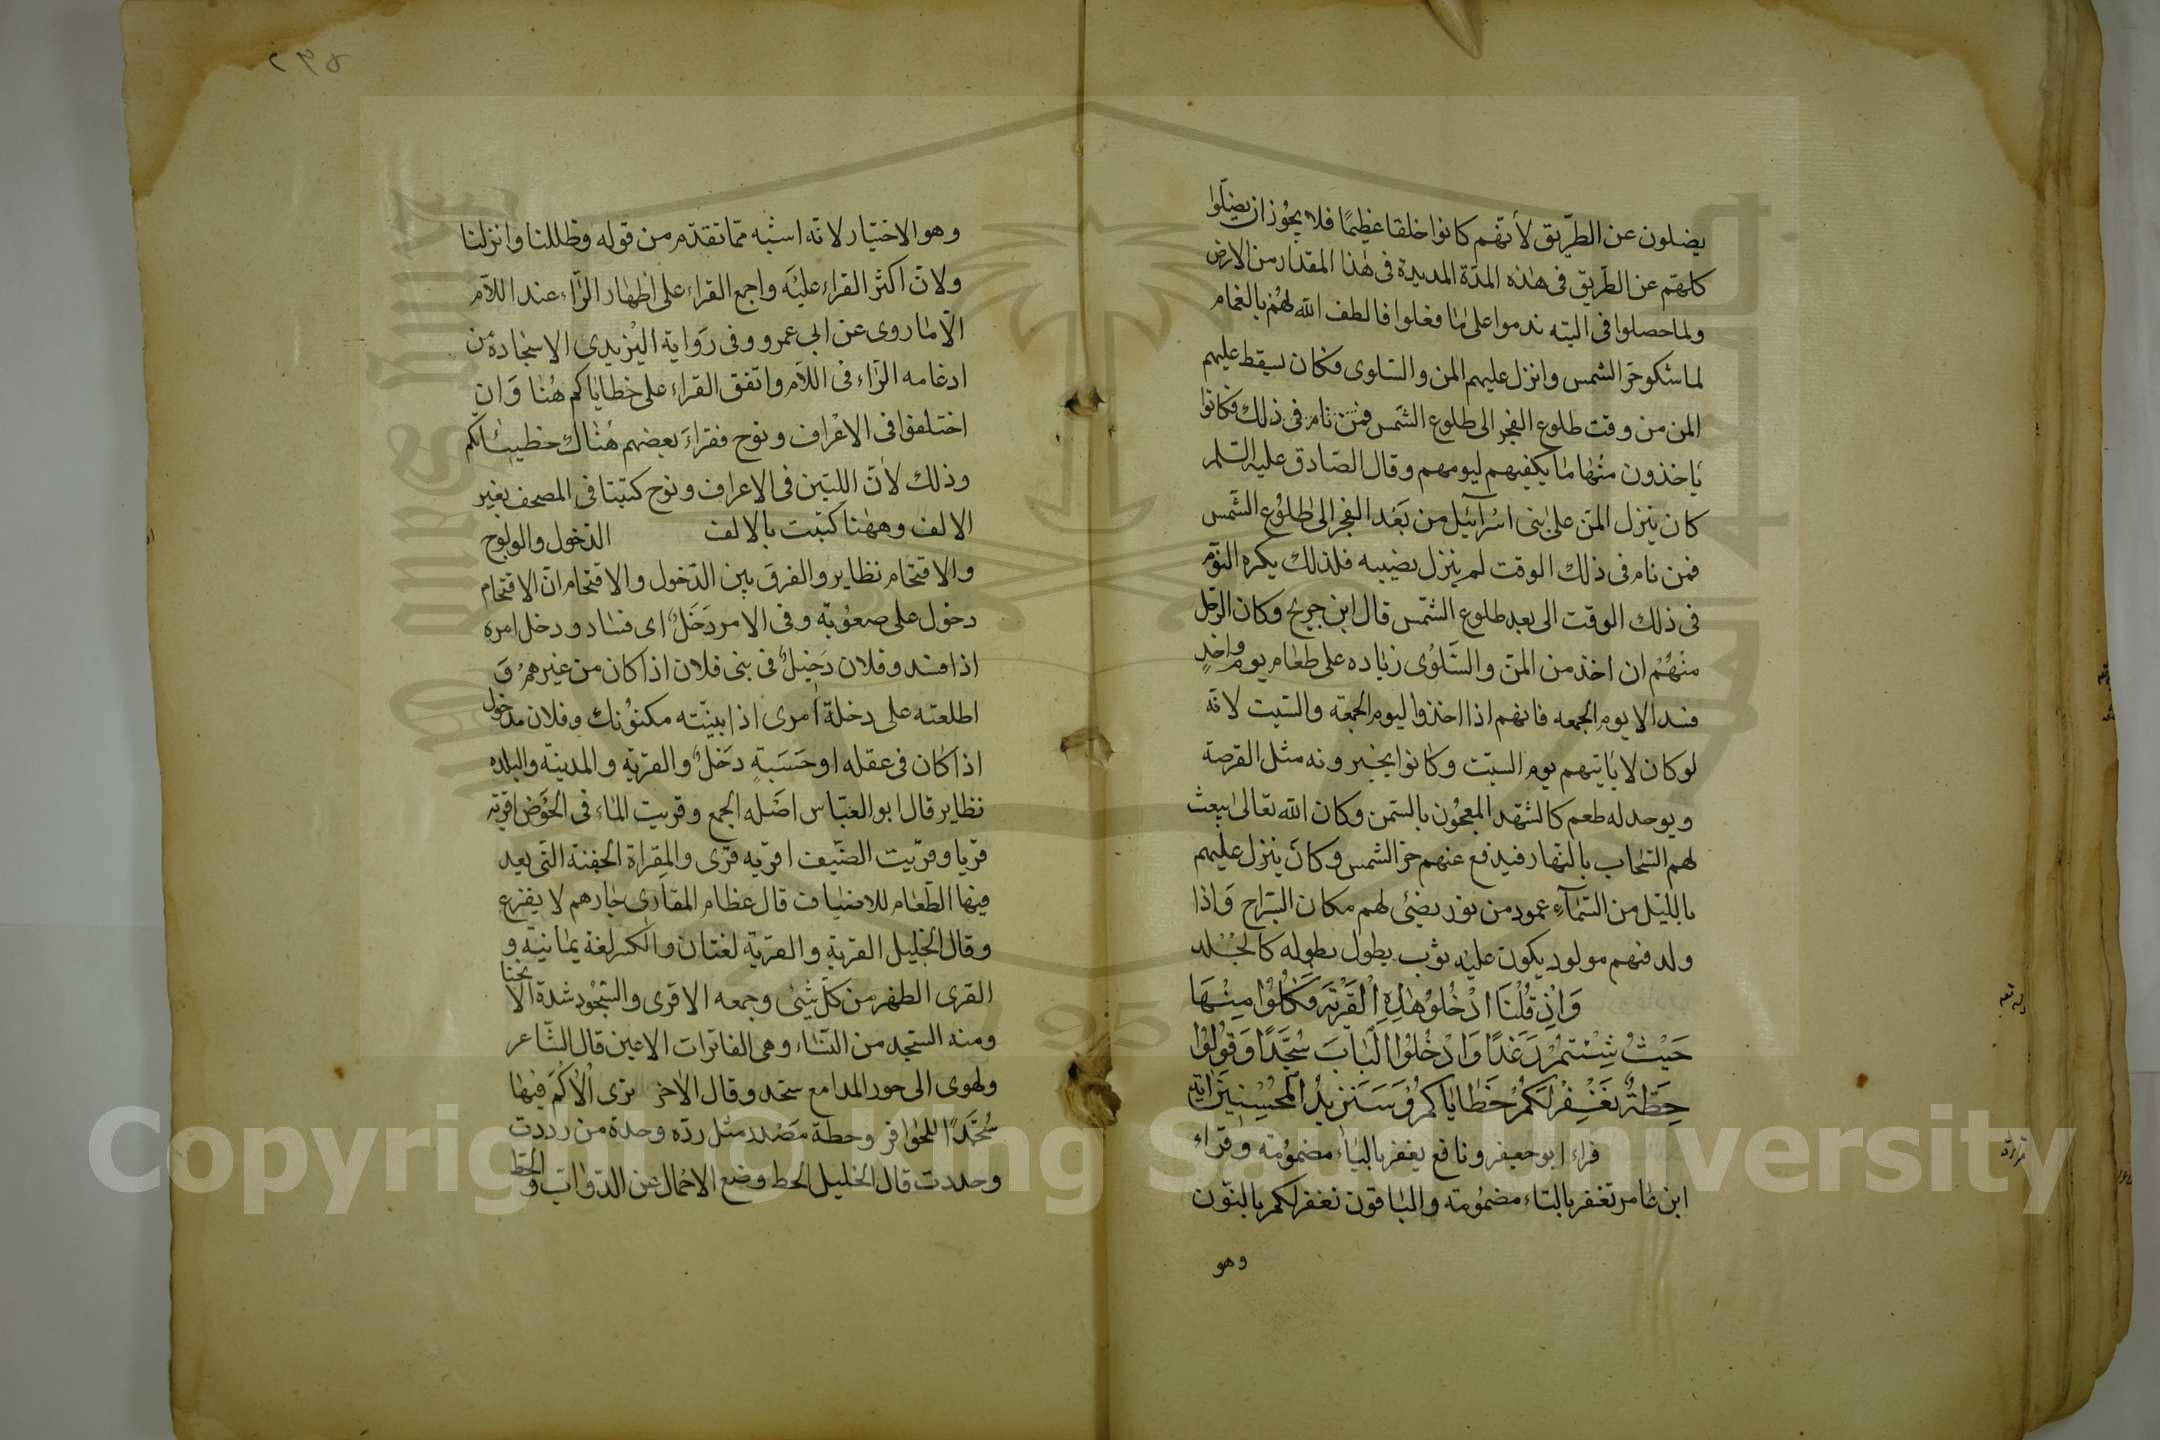 يضلون عن الطّريق لأنهّم كانوا خلقا عظيمًا فلا يجُوز ان يضلّوا
كلهّم عن الطّريق فى هذه المدّة المديدة فى هٰذا المقدار من الارض
ولما حصلوا فى التيه ندموا على مٰا فعلوا فالطف الله لهُم بالغمام
لما شكو حرّ الشمس وانزل عليهم المن والسّلوى وكان يسقط عليهم
المن من وقت طلوع الفجر الى طلوع الشّمس فمن نام فى ذلك فكانوا
يَاخذون منْها ما يكفيهم ليومهم وقال الصّادق عليه السّلم
كان ينزل المنّ على بنى اسْرآئيل من بَعْد الفجر الى طلوُع الشّمس
فمن نام فى ذلك الوقت لم ينزل نصيبه فلذلك يكره النّوم
فى ذلك الوقت الى بعد طلوع الشّمس قال ابن جريج وكان الرّجل
منْهُم ان اخذ من المنّ والسَّلوٰى زياده على طعٰام يوم واحدٍ
فسد الا يوم الجمعه فانهم اذا اخذوا ليوم الجمعة والسّبت لانّه
لوكان لا يٰاتيهم يوم السّبت وكانوا يخبزونه مثل القرصة
ويوجد له طعم كالشّهد المعجوُن بالسّمن وكان الله تعٰالى يبعث
لهم السّحاب بالنّهار فيدفع عنهم حرّ الشمس وكان ينزل عليهم
بالليّل من السّمٰآءِ عمود من نور يضئى لهم مكان السّراج وَاذا
ولد فيهم مولود يكون عليه ثوب يطول بطوله كالجُلد
وَاِذ قُلْنَا ادْخُلوُا هٰذِهِ الْقَرْيَةَ فَكُلُوْا مِنْهَا
حَيْثُ شِئْتمُ رَغَدًا وَادْخُلوُا الْبٰابَ سُجَّدًا وَقوُلوُا
حِطَّةٌ نَغْفِرْ لَكُمْ خَطٰايٰاكمُ وَسَنَزيدُ الْمحُسِنِينَ اية
قراء ابوجعفر ونافع يغفر بالياء مضموُمة وقراء
ابن عامر تغفر بالتاء مضموُمة والبٰاقون نغفر لكم بالنّون
وهو
٢٩٨
وهو الاختيار لانّه اشبه ممّا تقدّم من قوله وظللنا وانزلنا
ولانّ اكثر القراء عليْه واجمع القراء على اظهار الرّاء عند اللاّم
الاّ مٰا روى عن ابى عمرو وفى رَواية اليزيدى الاستجادة من
ادغامه الرّاء فى اللاّم واتفق القراء على خطايٰاكم هُنٰا وَان
اختلفوا فى الاعْراف ونوح فقراءَ بعضهم هُنٰاك خطيئٰاتكم
وذلك لانّ اللتّين فى الاعراف ونوح كتبتا فى المصحف بغير
الالف وههنا كتبت بالالف الدّخول والولوج
والاقتحام نظاير والفرق بين الدّخول والاقتحام انّ الاقتحام
دخول على صعوُبة وفى الامر دَخَلٌ اى فسٰاد ودخل امره
اذا فسد وفلان دَخيلٌ فى بنى فلان اذا كان من غيرهمُ وَ
اطلعته على دخلة اَمرى اذا بينّته مكنوُنك وفلان مدخول
اذا كٰان فى عقله او حَسَبهٖ دَخلٌ والقرية والمدينة والبلده
نظاير قال ابو العبّاس اصْله الجمع وقريت المٰاء فى الحَوض اقريه
قريا وقرّيت الضّيف اقريه قرّى والمِقراة الجفنة التى يعد
فيها الطّعام للاضيٰاف قال عظام المقٰارى جٰارهم لا يفزع
وقال الخليل القرية والقرية لغتان والكسر لغة يمٰانية و
القرى الظهر من كلّ شئ وجمعه الاقرى والسّجُود شدة الانحنا
ومنه السّجد من النّسٰاء وهى الفاترات الاعين قال الشّاعر
ولهوى الى حور المدامع سجّد وقال الاخر ترى الاُكْمَ فيهٰا
سُجّدًا للحوٰافر وحطّة مَصْدر مثل ردّه وحدة من رددت
وحددت قال الخليل الحط وضع الاحْمال عن الدّوابّ والحَطّ